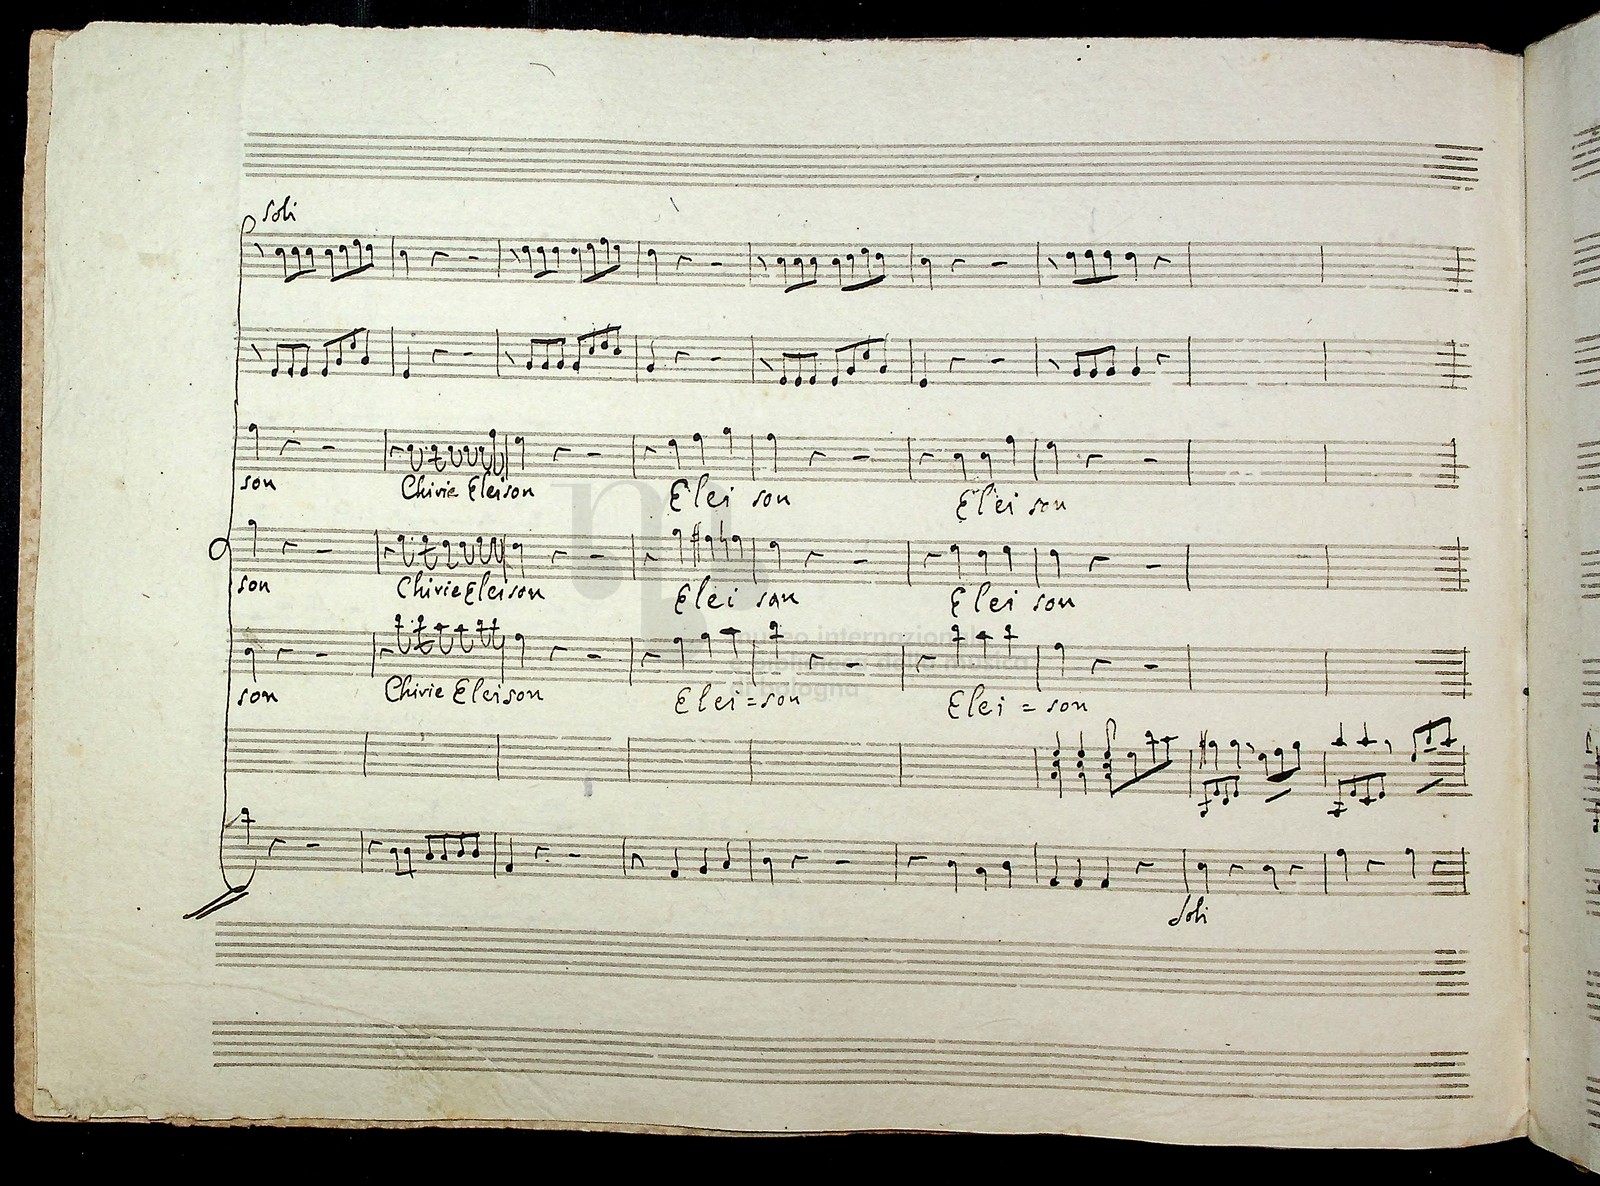 Soli
son Chirie Eleison Elei son Elei son
son Chirie Eleison Elei son Elei son
son Chirie Eleison Elei=son Elei = son
museo internazionale
e biblioteca della musica
di bologna
Soli